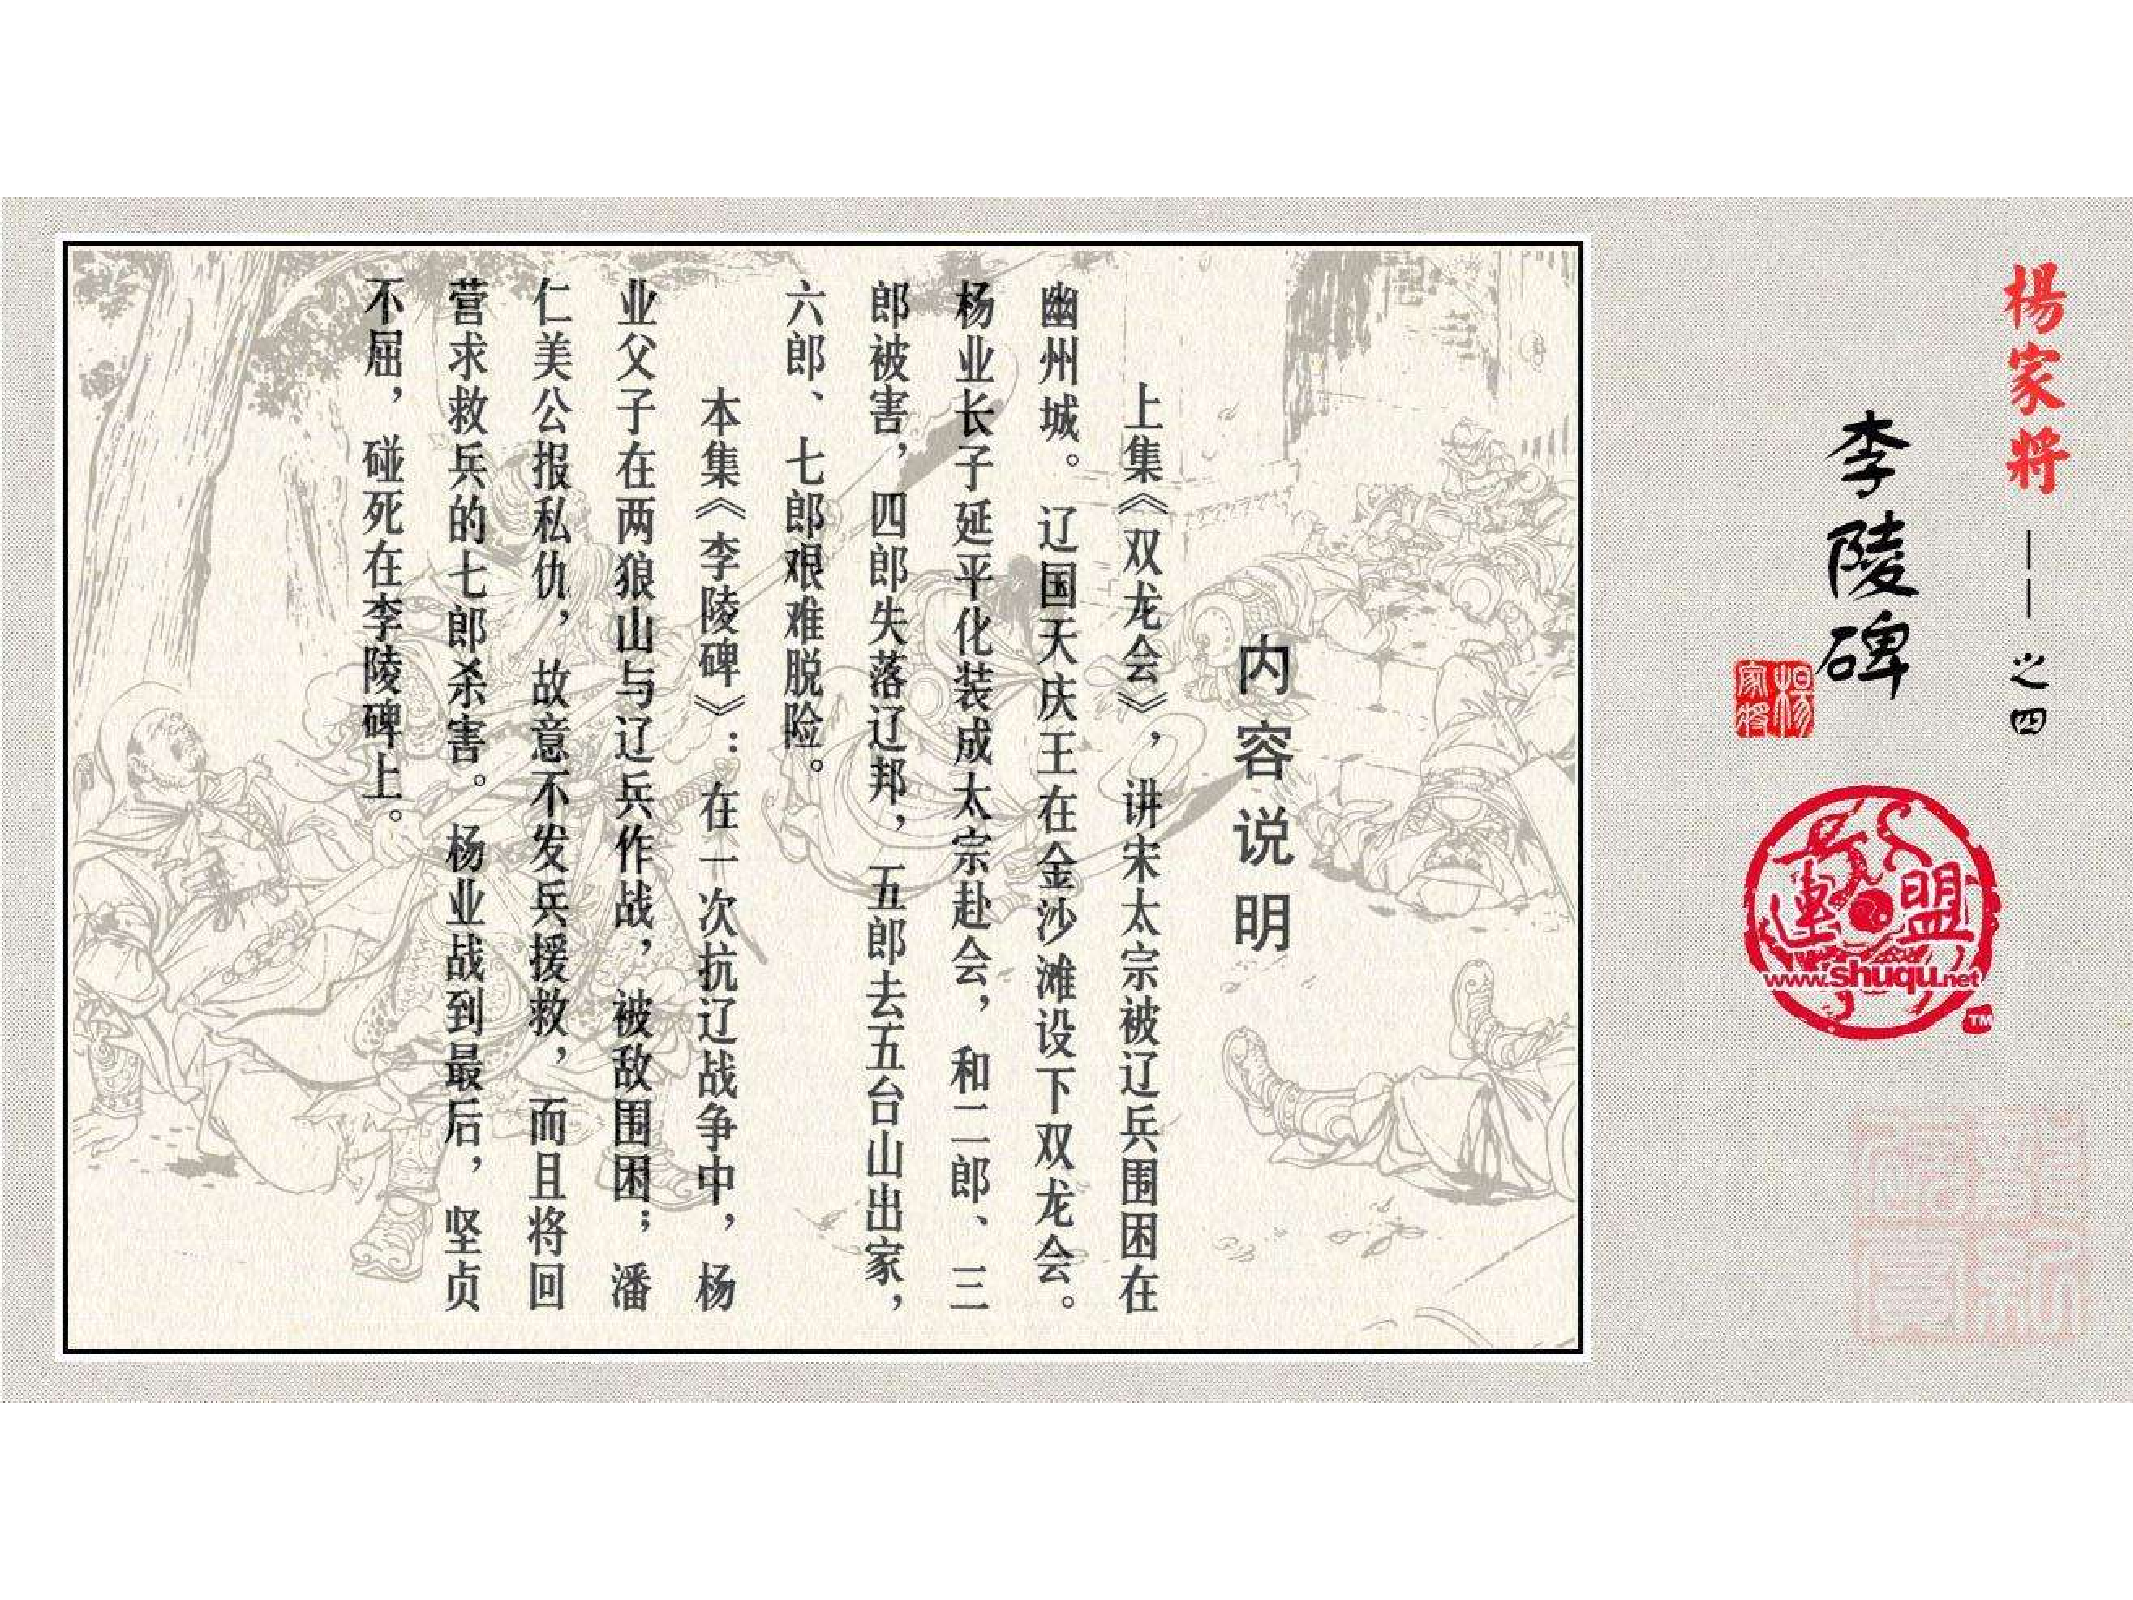 楊家将——之四
李陵碑
楊家将
連盟
www.shuqu.net
TM
内容说明
上集《双龙会》，讲宋太宗被辽兵围困在
幽州城。辽国天庆王在金沙滩设下双龙会。
杨业长子延平化装成太宗赴会，和二郎、三
郎被害，四郎失落辽邦，五郎去五台山出家，
六郎、七郎艰难脱险。
本集《李陵碑》：在一次抗辽战争中，杨
业父子在两狼山与辽兵作战，被敌围困；潘
仁美公报私仇，故意不发兵援救，而且将回
营求救兵的七郎杀害。杨业战到最后，坚贞
不屈，碰死在李陵碑上。